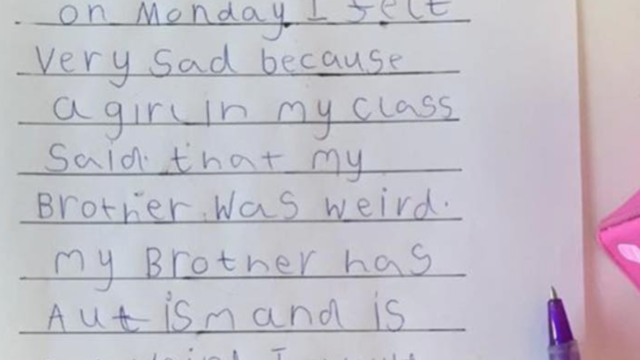 on Monday I felt
very sad because
a girl in my class
said that my
Brother was weird.
my Brother has
Autism and is